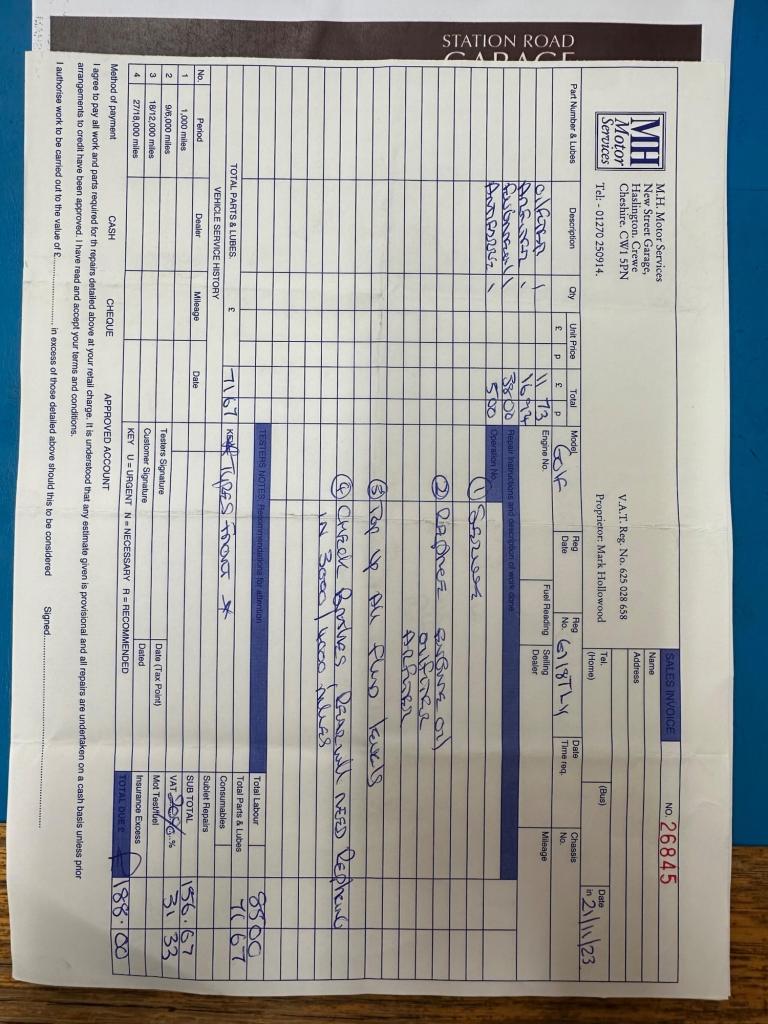 STATION ROAD
GARAGE
MH
Motor
Services
M.H. Motor Services
New Street Garage,
Haslington, Crewe
Cheshire. CW1 5PN
Tel: - 01270 250914.
V.A.T. Reg. No. 625 028 658
Proprietor: Mark Hollowood
SALES INVOICE
NO. 26845
Name
Address
Tel. (Home)
(Bus)
Date in 21/11/23
Part Number & Lubes Description Qty Unit Price £ p Total £ p
Model Golf Reg Date Reg No. Date Time req. Chassis No.
Engine No. Fuel Reading Selling Dealer Mileage
Oil Filter 1 11 73
Air Filter 1 16 94
Engine oil 1 38 00
Antifreeze 1 5 00
Repair Instructions and description of work done
Operation No.
① Service
② Replace Engine oil
oil Filter
Air Filter
③ Top up All fluid levels
④ Check Brakes, Rear will NEED Replace
IN 3000/4000 miles
TOTAL PARTS & LUBES. £ 71 67
TESTERS NOTES: Recommendations for attention
KEY * TYRES FRONT *
VEHICLE SERVICE HISTORY
No. Period Dealer Mileage Date
1 1,000 miles
2 9/6,000 miles
3 18/12,000 miles
4 27/18,000 miles
Testers Signature Date (Tax Point)
Customer Signature Dated
KEY U = URGENT N = NECESSARY R = RECOMMENDED
Total Labour 85 00
Total Parts & Lubes 71 67
Consumables
Sublet Repairs
SUB TOTAL 156.67
VAT 20% % 31 33
Mot Test/fuel
Insurance Excess
TOTAL DUE £ £188.00
Method of payment CASH CHEQUE APPROVED ACCOUNT
I agree to pay all work and parts required for th repairs detailed above at your retail charge. It is understood that any estimate given is provisional and all repairs are undertaken on a cash basis unless prior
arrangements to credit have been approved. I have read and accept your terms and conditions.
I authorise work to be carried out to the value of £.................... in excess of those detailed above should this to be considered Signed....................